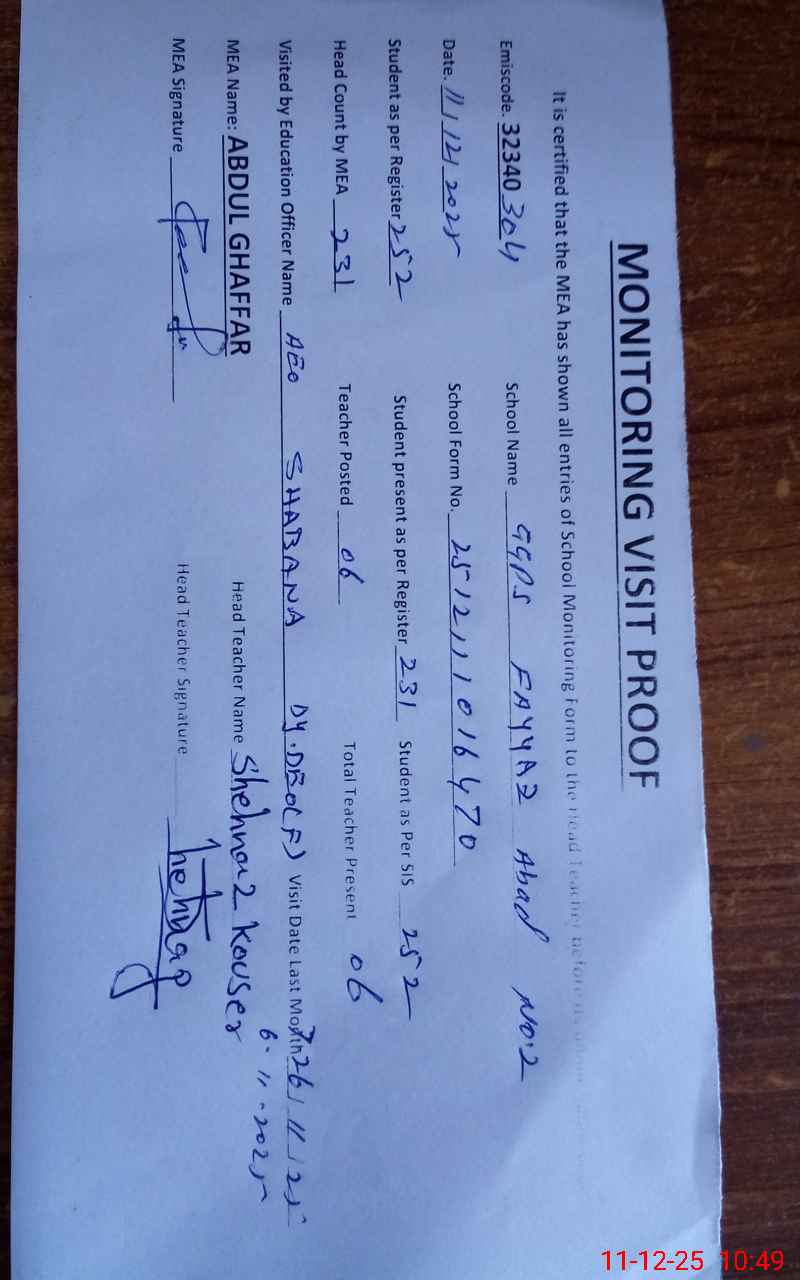 MONITORING VISIT PROOF
It is certified that the MEA has shown all entries of School Monitoring Form to the Head Teacher before its
Emiscode. 32340304 School Name GGPS FAYYAZ Abad NO.2
Date. 11/12/2025 School Form No. 2512111016470
Student as per Register 252 Student present as per Register 231 Student as Per SIS 252
Head Count by MEA 231 Teacher Posted 06 Total Teacher Present 06
Visited by Education Officer Name AEO SHABANA DY.DEO(F) Visit Date Last Month 26/11/25
6.11.2025
MEA Name: ABDUL GHAFFAR Head Teacher Name Shehnaz Kouser
MEA Signature Head Teacher Signature
11-12-25 10:49